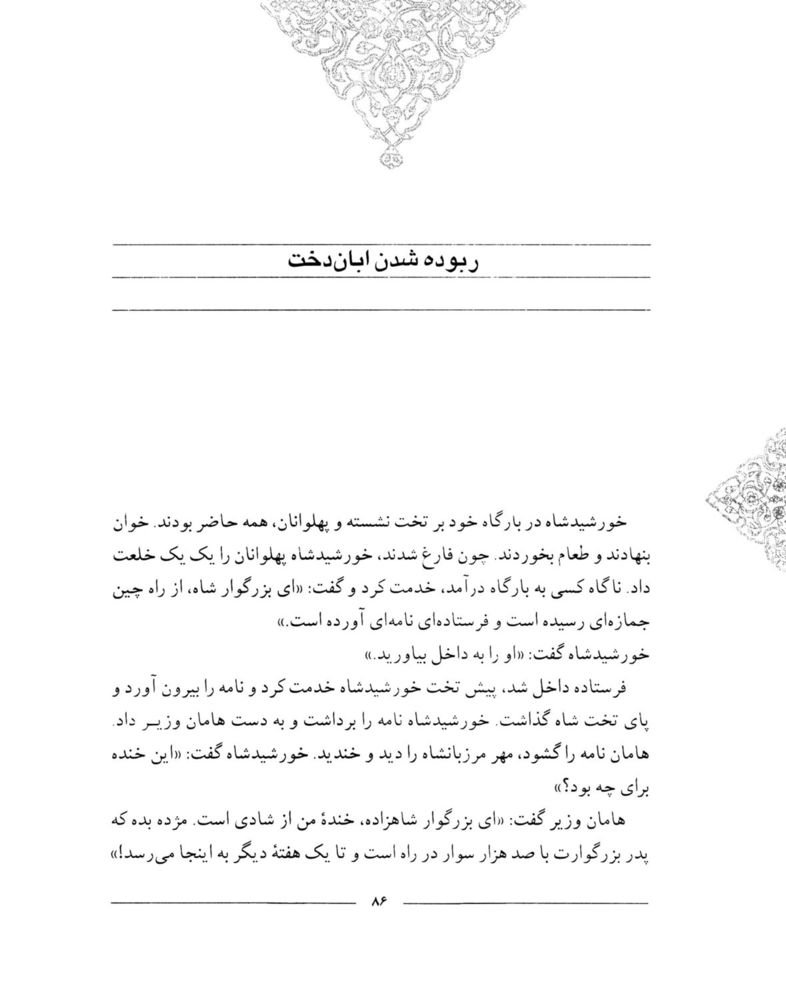 ربوده شدن ابان‌دخت
خورشیدشاه در بارگاه خود بر تخت نشسته و پهلوانان، همه حاضر بودند. خوان
بنهادند و طعام بخوردند. چون فارغ شدند، خورشیدشاه پهلوانان را یک یک خلعت
داد. ناگاه کسی به بارگاه درآمد، خدمت کرد و گفت: «ای بزرگوار شاه، از راه چین
جمازه‌ای رسیده است و فرستاده‌ای نامه‌ای آورده است.»
خورشیدشاه گفت: «او را به داخل بیاورید.»
فرستاده داخل شد، پیش تخت خورشیدشاه خدمت کرد و نامه را بیرون آورد و
پای تخت شاه گذاشت. خورشیدشاه نامه را برداشت و به دست هامان وزیـر داد.
هامان نامه را گشود، مهر مرزبانشاه را دید و خندید. خورشیدشاه گفت: «این خنده
برای چه بود؟»
هامان وزیر گفت: «ای بزرگوار شاهزاده، خندهٔ من از شادی است. مژده بده که
پدر بزرگوارت با صد هزار سوار در راه است و تا یک هفتهٔ دیگر به اینجا می‌رسد!»
۸۶